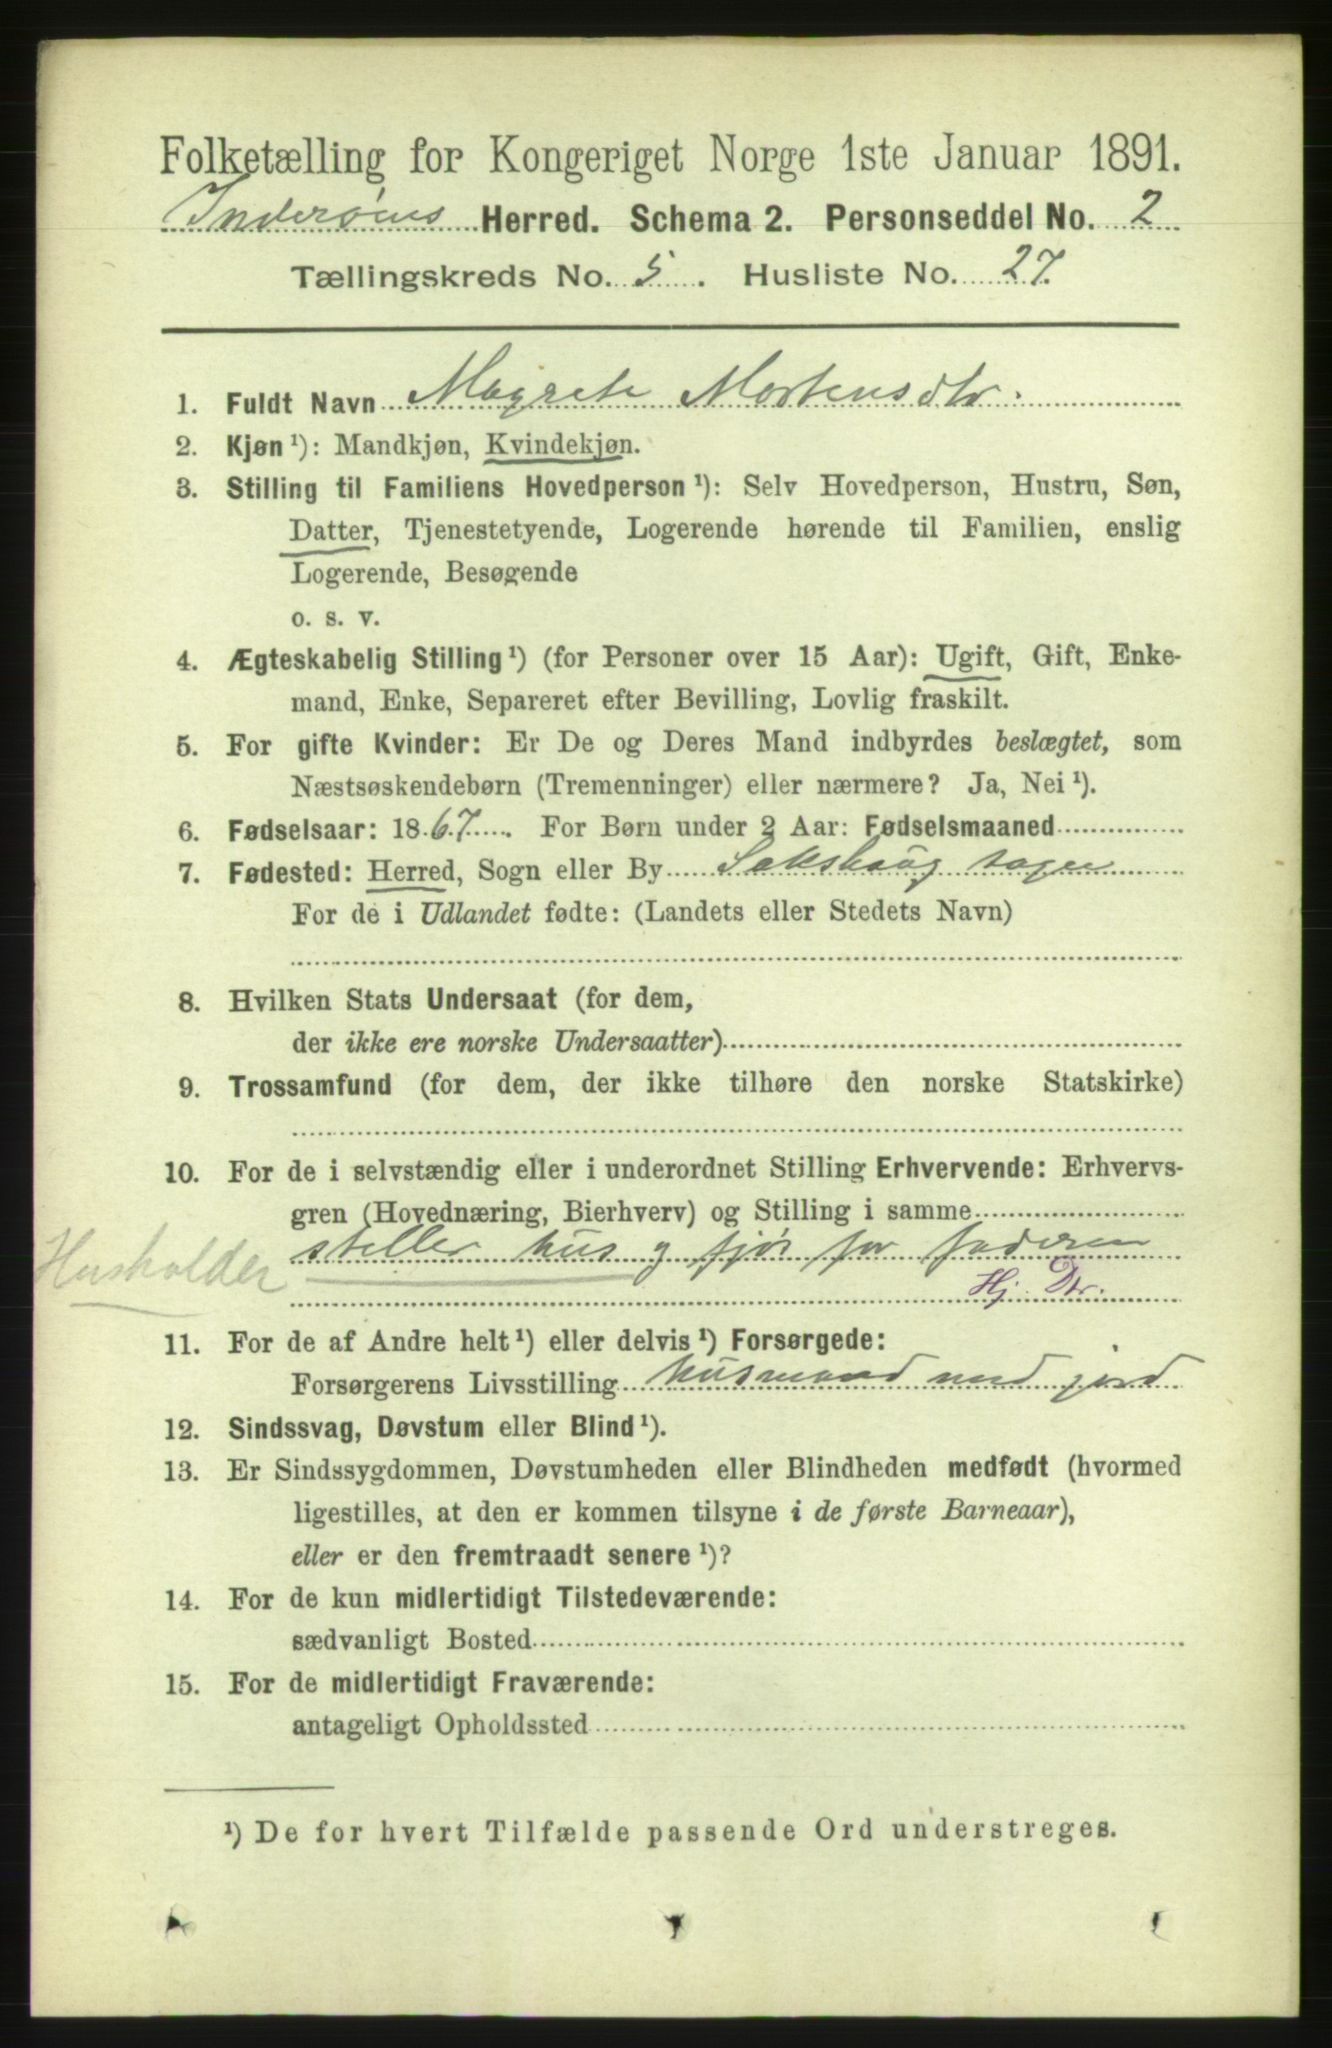 Folketælling for Kongeriget Norge 1ste Januar 1891.
Inderøens Herred. Schema 2. Personseddel No. 2
Tællingskreds No. 5. Husliste No. 27.
1. Fuldt Navn Magrete Mortensdtr.
2. Kjøn ¹): Mandkjøn, Kvindekjøn.
3. Stilling til Familiens Hovedperson ¹): Selv Hovedperson, Hustru, Søn,
Datter, Tjenestetyende, Logerende hørende til Familien, enslig
Logerende, Besøgende
o. s. v.
4. Ægteskabelig Stilling ¹) (for Personer over 15 Aar): Ugift, Gift, Enke-
mand, Enke, Separeret efter Bevilling, Lovlig fraskilt.
5. For gifte Kvinder: Er De og Deres Mand indbyrdes beslægtet, som
Næstsøskendebørn (Tremenninger) eller nærmere? Ja, Nei ¹).
6. Fødselsaar: 1867. For Børn under 2 Aar: Fødselsmaaned
7. Fødested: Herred, Sogn eller By Sakshaug sogn
For de i Udlandet fødte: (Landets eller Stedets Navn)
8. Hvilken Stats Undersaat (for dem,
der ikke ere norske Undersaatter)
9. Trossamfund (for dem, der ikke tilhøre den norske Statskirke)
10. For de i selvstændig eller i underordnet Stilling Erhvervende: Erhvervs-
gren (Hovednæring, Bierhverv) og Stilling i samme
steller hus og fjøs for faderen
Husholder
Hj. Dtr.
11. For de af Andre helt ¹) eller delvis ¹) Forsørgede:
Forsørgerens Livsstilling husmand med jord
12. Sindssvag, Døvstum eller Blind ¹).
13. Er Sindssygdommen, Døvstumheden eller Blindheden medfødt (hvormed
ligestilles, at den er kommen tilsyne i de første Barneaar),
eller er den fremtraadt senere ¹)?
14. For de kun midlertidigt Tilstedeværende:
sædvanligt Bosted
15. For de midlertidigt Fraværende:
antageligt Opholdssted
¹) De for hvert Tilfælde passende Ord understreges.